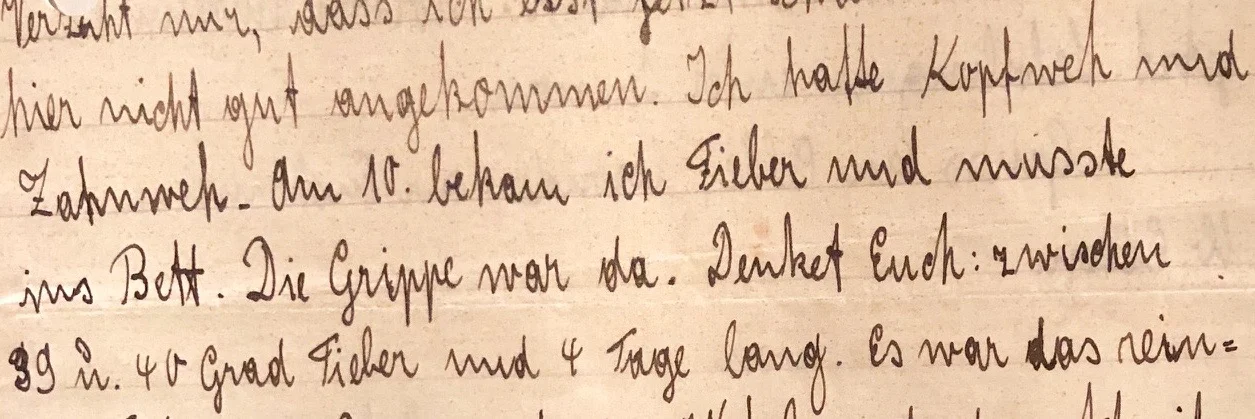 Verzeiht mir, dass ich erst jetzt
hier nicht gut angekommen. Ich hatte Kopfweh und
Zahnweh. Am 10. bekam ich Fieber und musste
ins Bett. Die Grippe war da. Denket Euch: zwischen
39 u. 40 Grad Fieber und 4 Tage lang. Es war das rein=